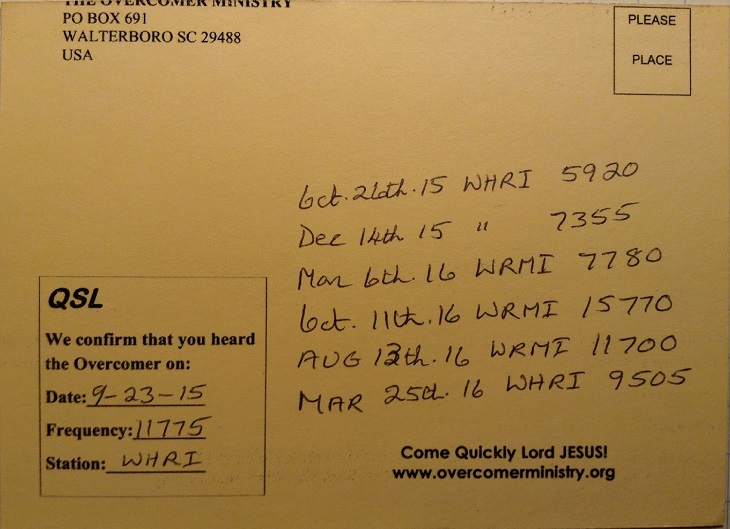 THE OVERCOMER MINISTRY
PO BOX 691
WALTERBORO SC 29488
USA
PLEASE
PLACE
Oct. 26th. 15 WHRI 5920
Dec 14th 15 " 7355
Mar 6th. 16 WRMI 7780
Oct. 11th. 16 WRMI 15770
AUG 13th. 16 WRMI 11700
MAR 25th. 16 WHRI 9505
QSL
We confirm that you heard
the Overcomer on:
Date: 9-23-15
Frequency: 11775
Station: WHRI
Come Quickly Lord JESUS!
www.overcomerministry.org